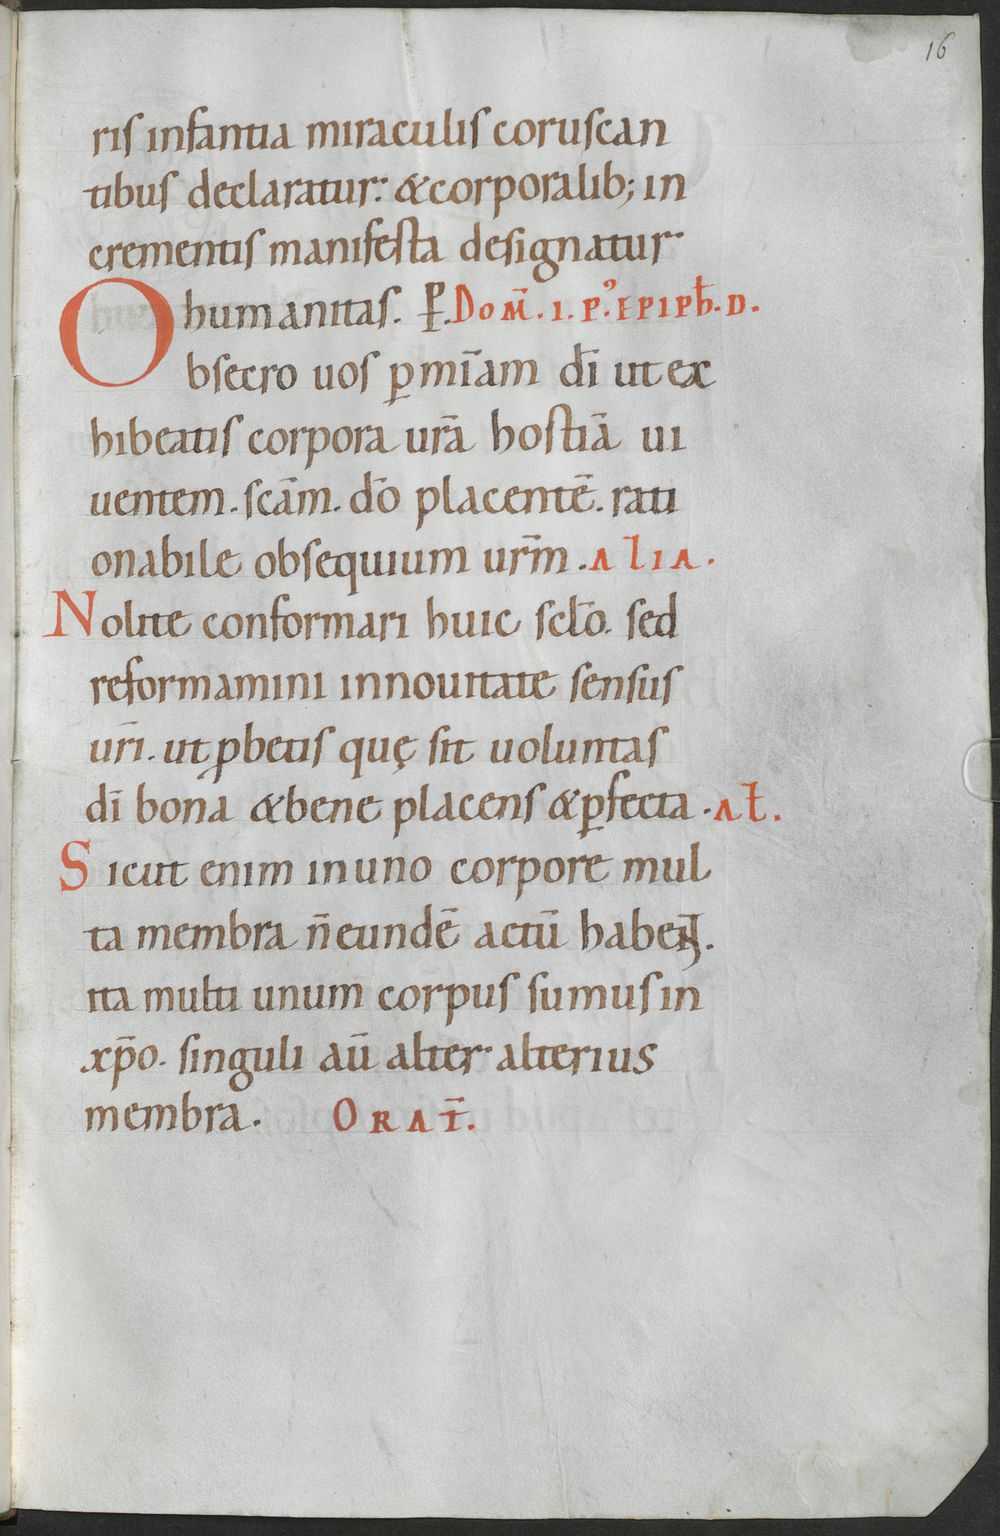 16
ris infantia miraculis coruscan
tibus declaratur. & corporalib; in
crementis manifesta designatur
humanitas. P. DOM̄. I. P᾽. EPIPH̄. D.
Obsecro uos ꝑ mīam dī ut ex
hibeatis corpora urā hostiā ui
uentem. scām. dō placentē. rati
onabile obsequium urm̄. ALIA.
Nolite conformari huic sclō. sed
reformamini in nouitate sensus
urī. ut ꝓbetis quę sit uoluntas
dī bona & bene placens & ꝑfecta. AŁ.
Sicut enim in uno corpore mul
ta membra n̄ eundē actū habent.
ita multi unum corpus sumus in
xp̄o. singuli aū alter alterius
membra. ORAT̄.